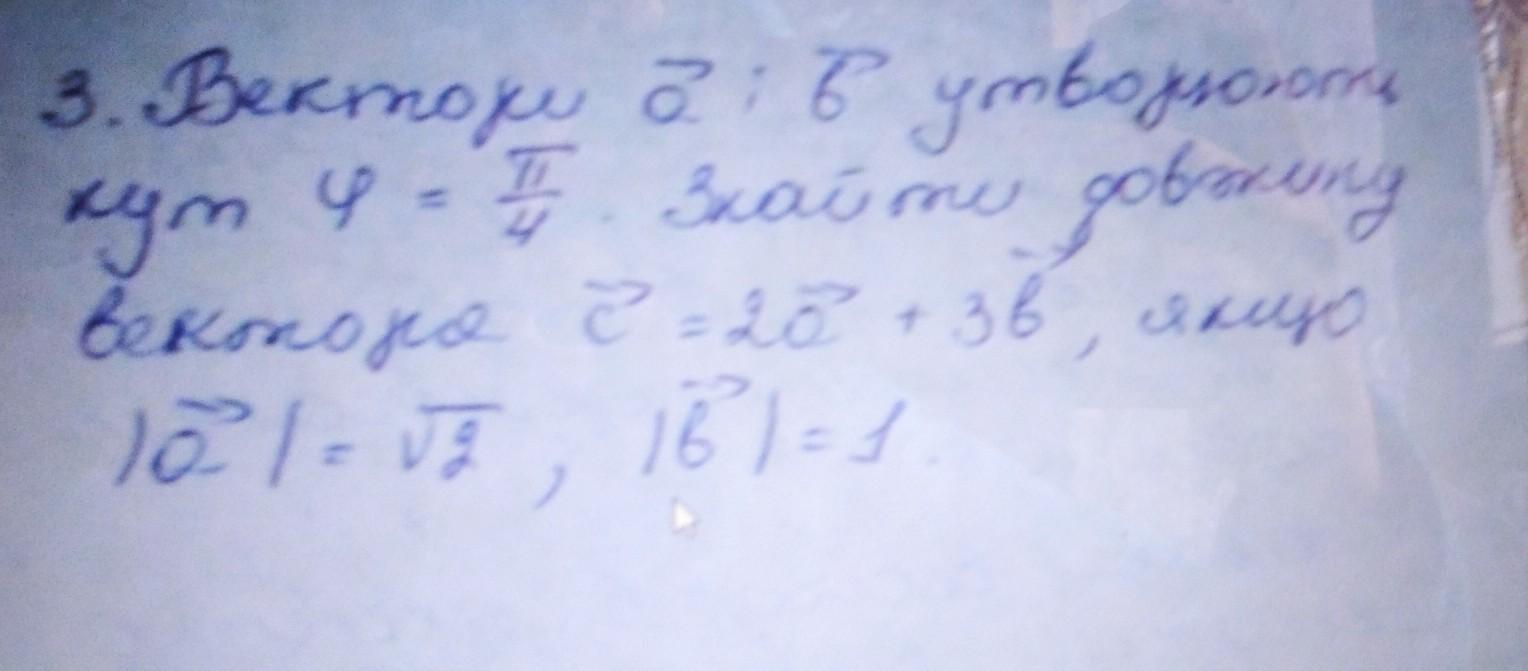 3. Вектори a⃗ і b⃗ утворюють
кут φ = π/4. Знайти довжину
вектора c⃗ = 2a⃗ + 3b⃗, якщо
|a⃗| = √2, |b⃗| = 1.